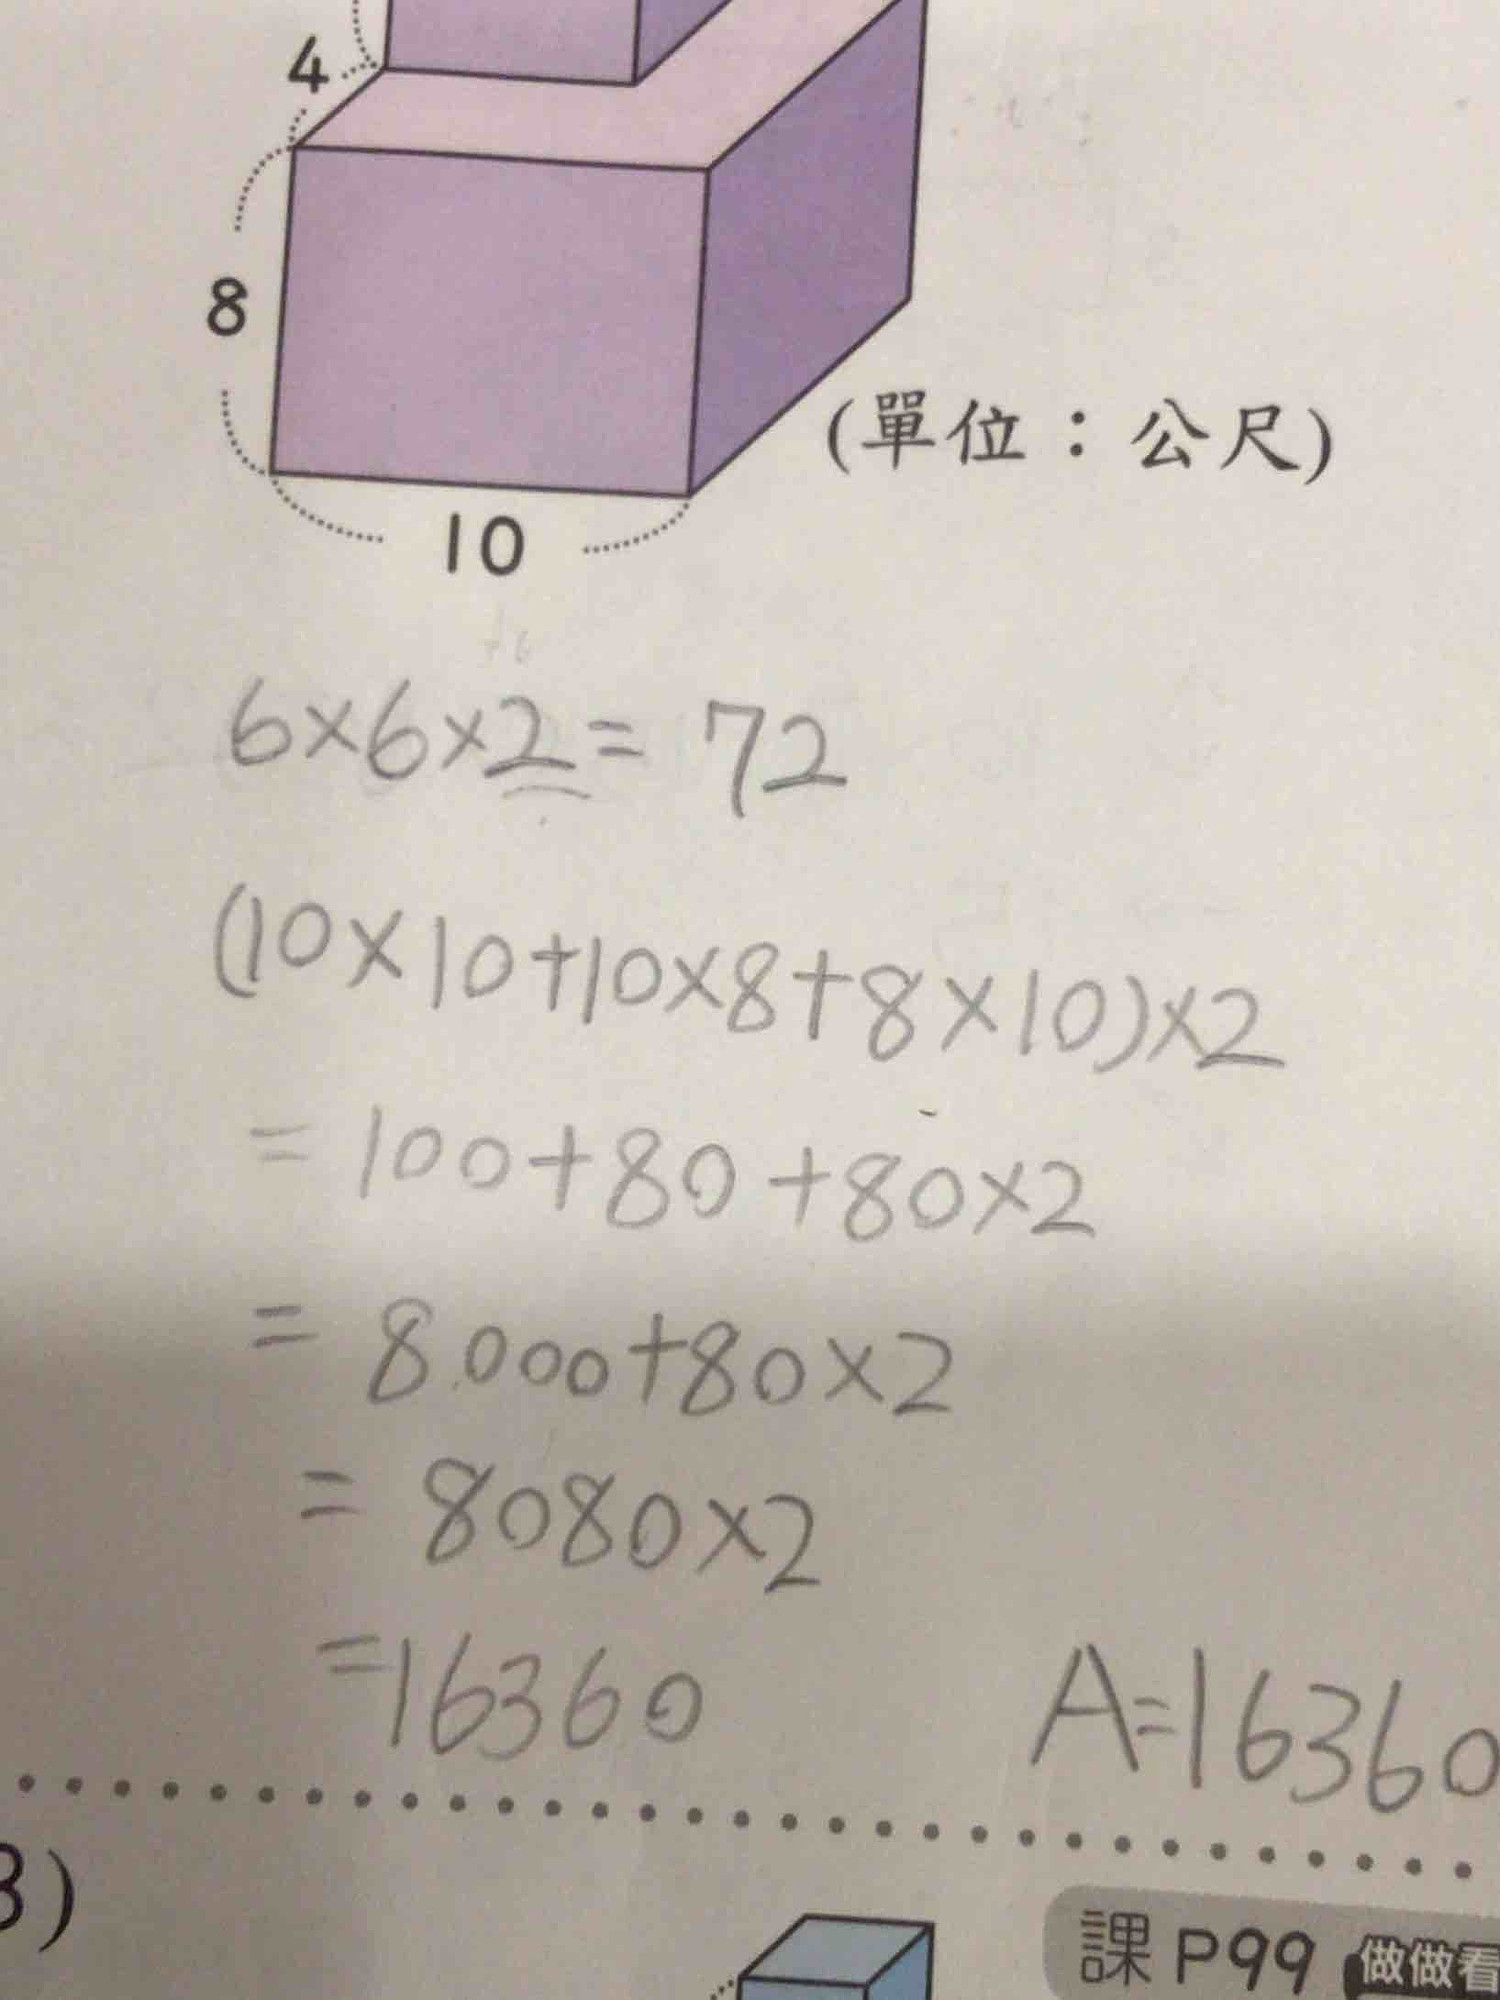 4
8
(單位：公尺)
10
6×6×2=72
(10×10+10×8+8×10)×2
=100+80+80×2
=8000+80×2
=8080×2
=16360
A=16360
3)
課P99 做做看